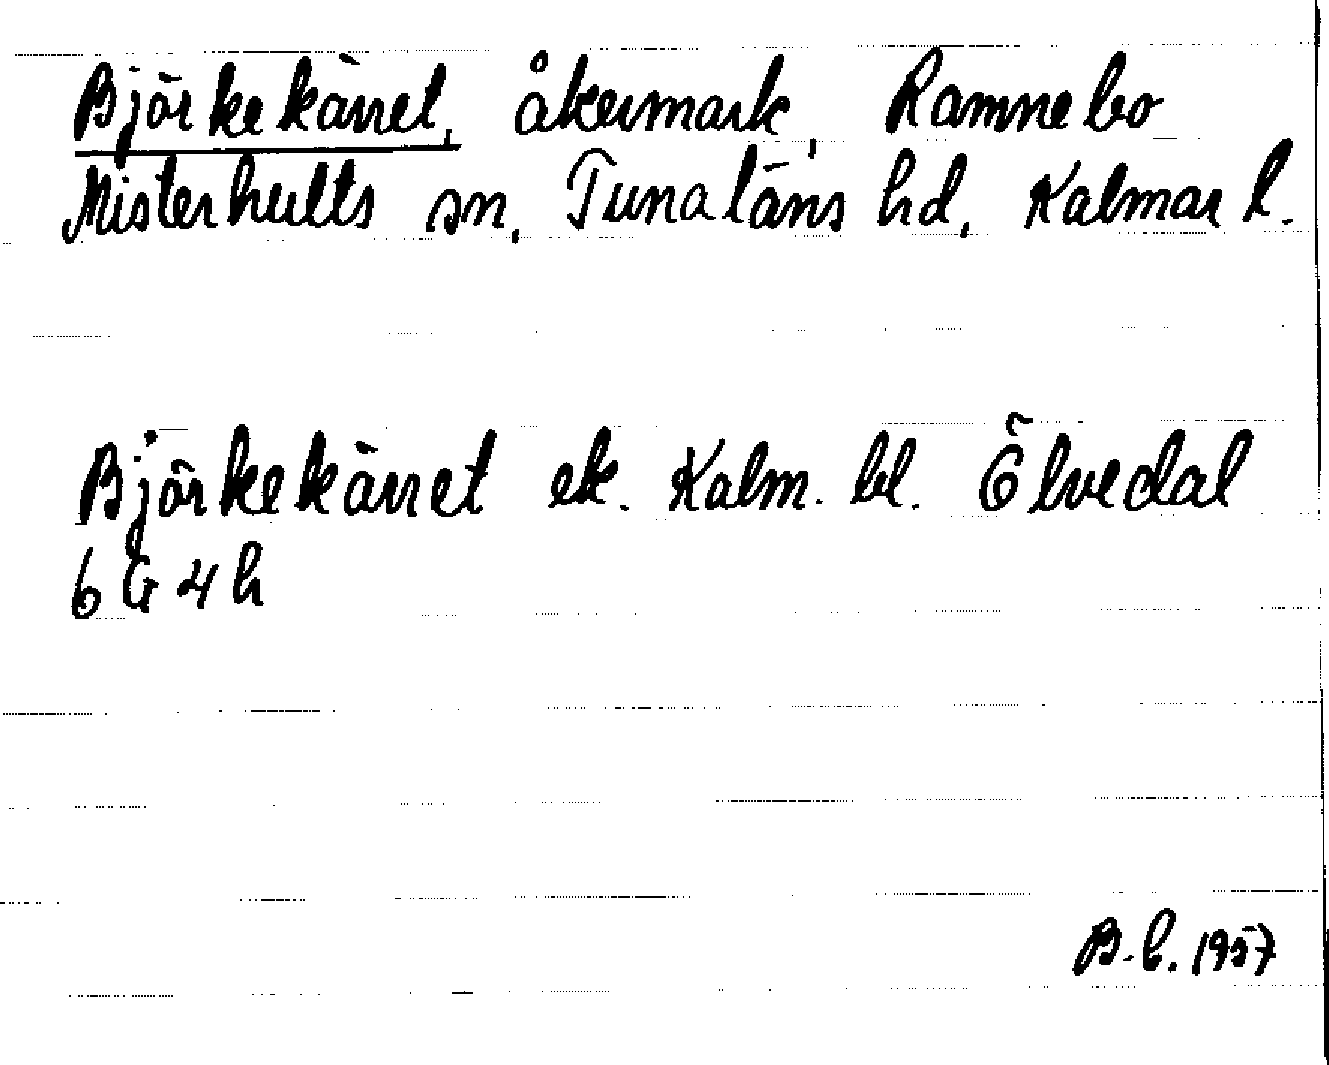 Björkekärret, åkermark, Ramnebo
Misterhults sn, Tunaläns hd, Kalmar l.
Björkekärret ek. Kalm. bl. Ölvedal
6 G 4 h
B.b. 1957